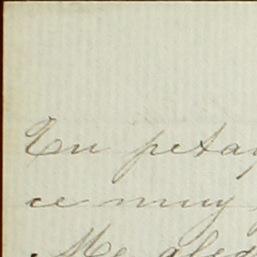 Tu peta
ce muy
Me aleg